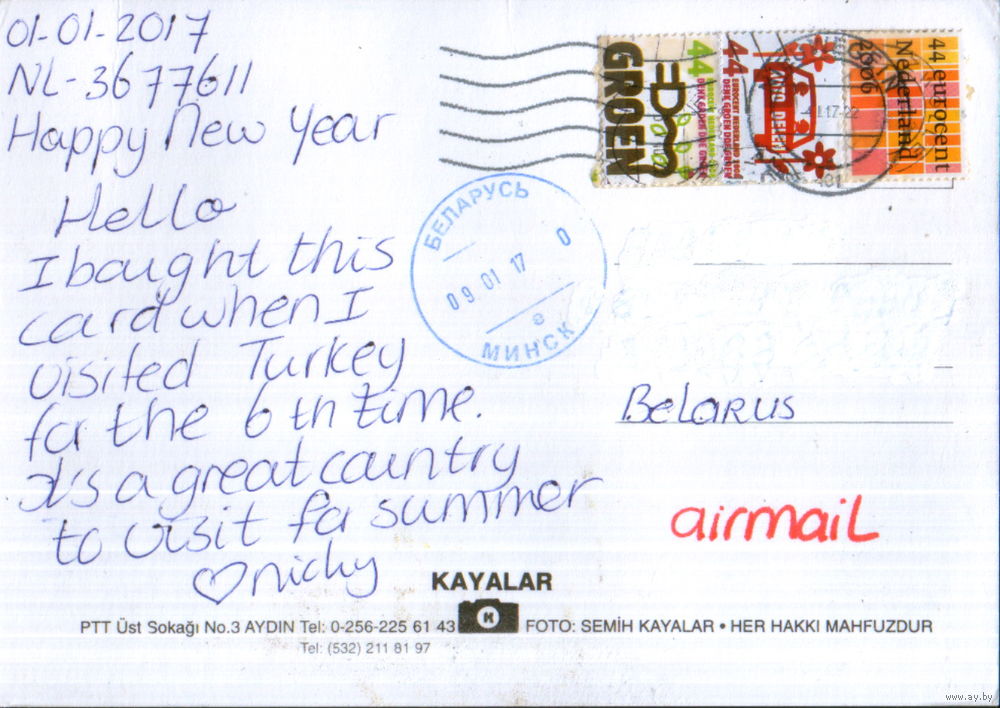 01-01-2017
NL-3677611
Happy New Year
Hello
I bought this
card when I
visited Turkey
for the 6th time.
It's a great country
to visit for summer
♡nicky
GROEN
DOEN
44
44
44 eurocent
Nederland
2006
БЕЛАРУСЬ
09 01 17
0
е
МИНСК
Belarus
airmail
KAYALAR
PTT Üst Sokağı No.3 AYDIN Tel: 0-256-225 61 43
K
FOTO: SEMİH KAYALAR • HER HAKKI MAHFUZDUR
Tel: (532) 211 81 97
www.ay.by